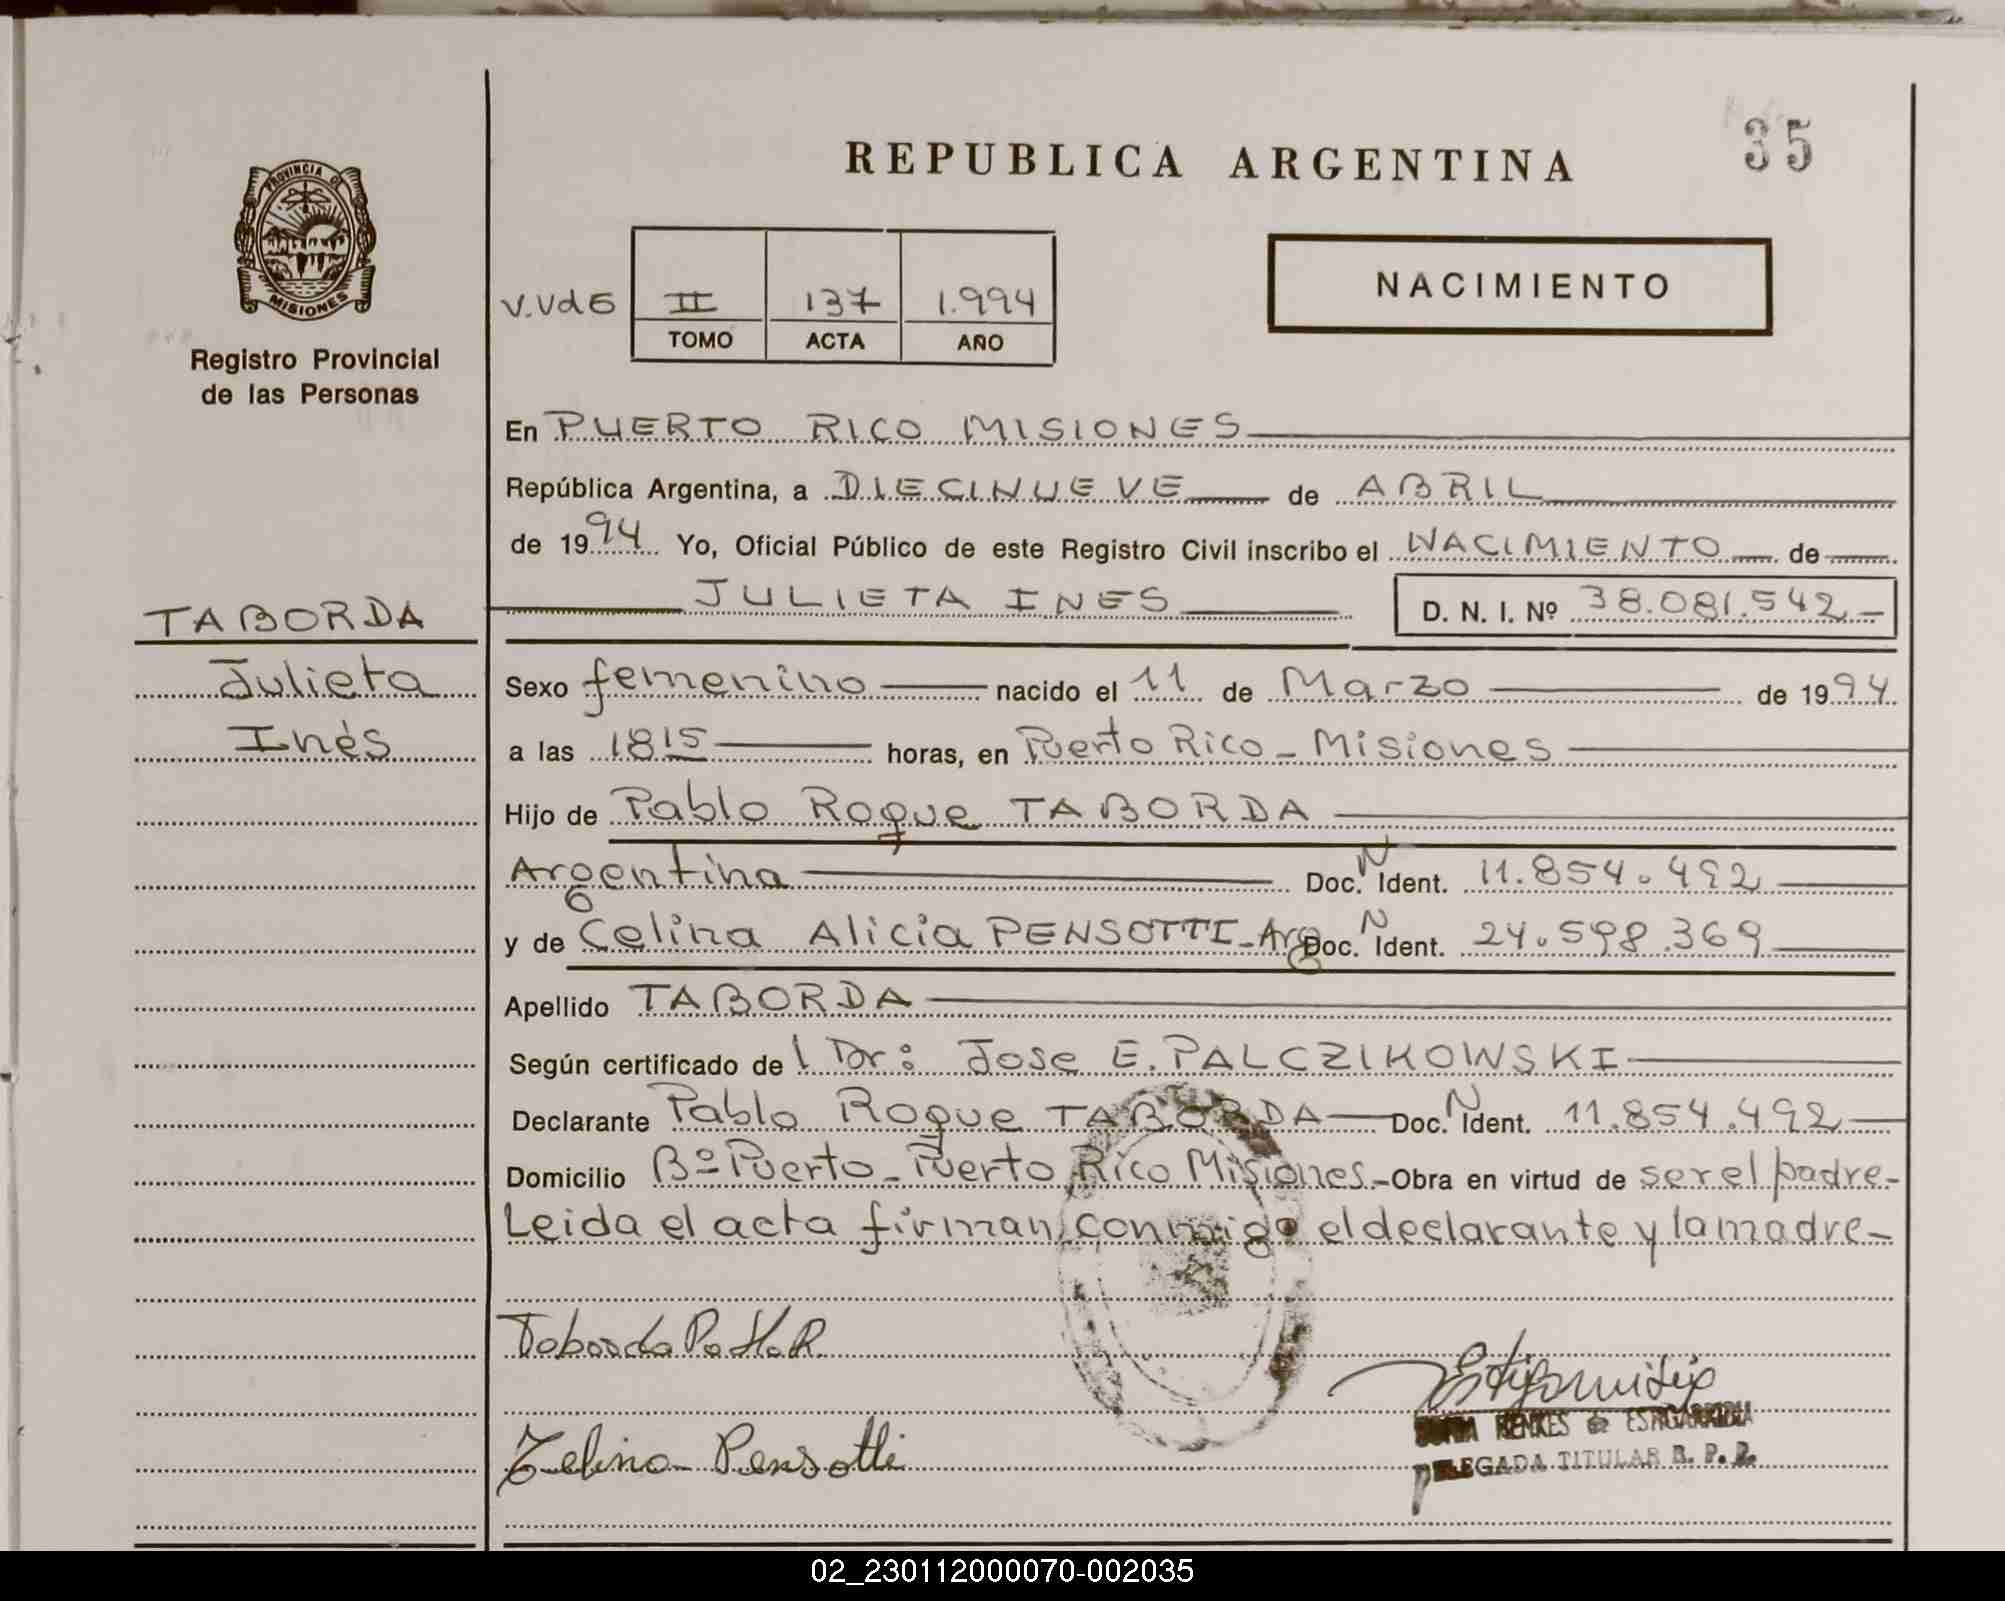 REPUBLICA ARGENTINA
35
PROVINCIA DE
MISIONES
Registro Provincial
de las Personas
V.VdE II 137 1.994
TOMO ACTA AÑO
NACIMIENTO
En PUERTO RICO MISIONES
República Argentina, a DIECINUEVE de ABRIL
de 1994 Yo, Oficial Público de este Registro Civil inscribo el NACIMIENTO de
JULIETA INES D. N. I. Nº 38.081.542
TABORDA
Julieta
Inés
Sexo femenino nacido el 11 de Marzo de 1994
a las 1815 horas, en Puerto Rico - Misiones
Hijo de Pablo Roque TABORDA
Argentina Doc. N Ident. 11.854.492
y de Celina Alicia PENSOTTI - Arg Doc. N Ident. 24.598.369
Apellido TABORDA
Según certificado de l Dr: Jose E. PALCZIKOWSKI
Declarante Pablo Roque TABORDA Doc. N Ident. 11.854.492
Domicilio Bº Puerto - Puerto Rico Misiones - Obra en virtud de ser el padre -
Leida el acta firman conmigo el declarante y la madre -
Taborda
Celina Pensotti
DELEGADA TITULAR R. P. P.
02_230112000070-002035